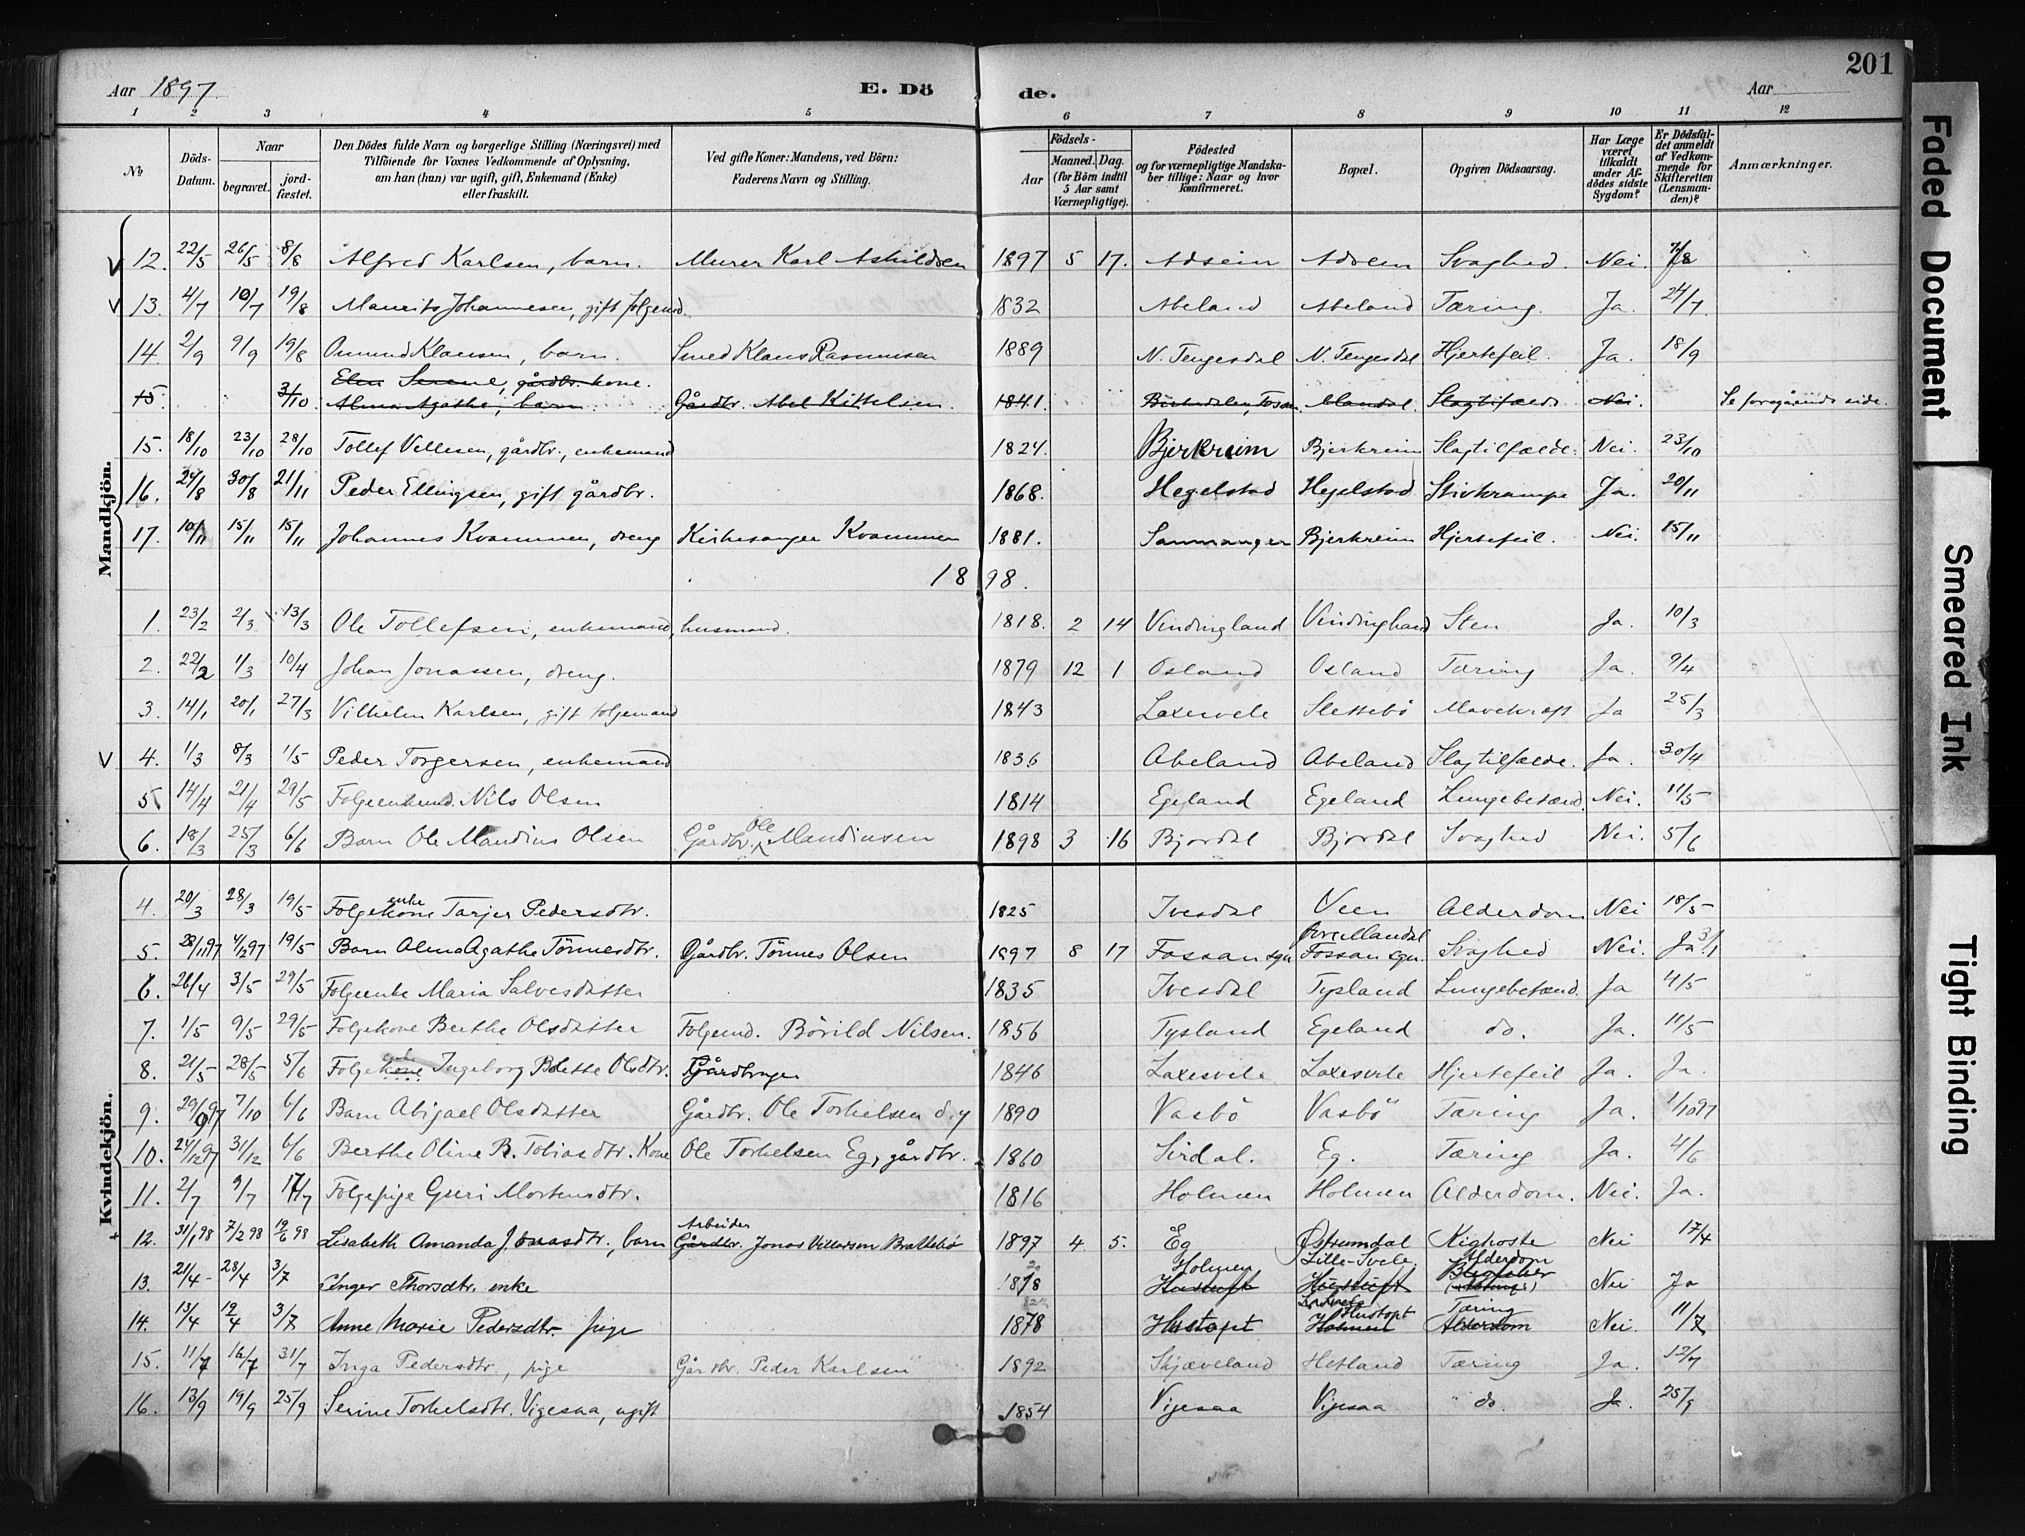 201
Aar 1897. E. Dö de. Aar
1 2 3 4 5 6 7 8 9 10 11 12
No Döds-Datum. Naar begravet. jord-fæstet. Den Dödes fulde Navn og borgerlige Stilling (Næringsvei) med Tilföiende for Voxnes Vedkommende af Oplysning, om han (hun) var ugift, gift, Enkemand (Enke) eller fraskilt. Ved gifte Koner: Mandens, ved Börn: Faderens Navn og Stilling. Födsels- Aar Maaned. Dag. (for Börn indtil 5 Aar samt Værnepligtige). Födested og for værnepligtige Mandskaber tillige: Naar og hvor konfirmeret. Bopæl. Opgiven Dödsaarsag. Har Læge været tilkaldt under Afdödes sidste Sygdom? Er Dödsfaldet anmeldt af Vedkommende for Skifteretten (Lensmanden)? Anmærkninger.
Mandkjön.
12. 22/5 26/5 8/8 Alfred Karlsen, barn. Murer Karl Askildsen 1897 5 17. Adsein Adsein Svaghed. Nei. 7/8
13. 4/7 10/7 19/8 Maurits Johannesen, gift folgemd. 1832 Abeland Abeland Tæring. Ja. 24/7.
14. 2/9 9/9 19/8 Osmund Klausen, barn. Smed Klaus Rasmussen 1889 N. Tengesdal N. Tengesdal Hjertefeil. Ja. 18/9
Elen Serene, gårdbr. kone.
15. 3/10. Alma Agathe, barn. Gårdbr. Abel Kittelsen. 1841. Mandal. Slagtilfælde Nei. Se foregående side.
15. 18/10 23/10 28/10 Tollef Vellesen, gårdbr., enkemand 1824. Bjerkreim Bjerkreim Slagtilfælde. Nei. 23/10
16. 24/8 30/8 21/11 Peder Ellingsen, gift gårdbr. 1868. Hegelstad Hegelstad Stivkrampe Ja. 20/11
17. 10/11 15/11 15/11 Johannes Kvammen, dreng Kirkesanger Kvammen 1881. Sammanger Bjerkreim Hjertefeil. Nei. 15/11
1898.
1. 23/2 2/3 13/3 Ole Tollefsen, enkemand, husmand. 1818. 2 14 Vindingland Vindingland Sten Ja. 10/3
2. 22/2 1/3 10/4 Johan Jonassen, dreng. 1879 12 1 Osland Osland Tæring Ja. 9/4
3. 14/1 20/1 27/3 Vilhelm Karlsen, gift folgemand 1843 Laxesvele Slettebö Mavekræft Ja 25/3
4. 1/3 8/3 1/5 Peder Torgersen, enkemand 1836 Abeland Abeland Slagtilfælde. Ja. 30/4
5 14/4 21/4 29/5 Folgeenkemd. Nils Olsen 1814 Egeland Egeland Lungebetænd. Nei. 11/5
6. 18/3 25/3 6/6 Barn Ole Mandius Olsen Gårdbr. Ole Mandiusen 1898 3 16 Bjordal Bjordal Svaghed Nei. 5/6
Kvindekjön.
4. 20/3 28/3 19/5 Folgekone enke Tarjer Pedersdtr. 1825 Ivesdal Veen Alderdom Nei 18/5
5. 28/1197 4/1297 19/5 Barn Alma Agathe Tönnesdtr. Gårdbr. Tönnes Olsen 1897 8 17 Fossan sgn Fossan sgn. Svaghed Nei. Ja 3/1
6. 26/4 3/5 29/5 Folgeenke Maria Salvesdatter 1835 Ivesdal Tysland Lungebetænd. Ja 4/5
7. 1/5 9/5 29/5 Folgekone Berthe Olsdatter Folgemd. Börild Nilsen. 1856 Tysland Egeland do. Ja. 11/5
8. 21/5 28/5 5/6 Folgekone enke Ingeborg Bolette Olsdtr. Gårdbruger 1846 Laxesvele Laxesvele Hjertefeil Ja. Ja.
9. 29/9 97 7/10 6/6 Barn Abigael Olsdatter Gårdbr. Ole Torkelsen d.y 1890 Vasbö Vasbö Tæring Ja. 1/1097
10. 24/1297 31/12 6/6 Berthe Oline B. Tobiasdtr. Kone Ole Torkelsen Eg, gårdbr. 1860 Sirdal. Eg. Tæring Ja. 4/6
11. 2/7 9/7 17/7 Folgepige Guri Mortensdtr. 1816 Holmen Holmen Alderdom. Nei. Ja.
12. 31/1 98 7/2 98 19/6 98 Lisabeth Amanda Jonasdtr., barn Arbeider Gårdbr. Jonas Villadsen Brattebö 1897 4 5. Eg Østrumdal Kighoste Nei 17/4
13. 21/4 28/4 3/7 Inger Thorsdtr. enke 1818 Holmen Lille-Svele Alderdom Nei Ja
14. 13/4 19/4 3/7 Anne Marie Pedersdtr. pige 1878 Hustopt Hustopt Holmen Tæring Alderdom Nei. 11/7
15. 11/7 16/7 31/7 Inga Pedersdtr., pige Gårdbr. Peder Karlsen 1892 Skjæveland Hetland Tæring Ja. 12/7
16. 13/9 19/9 25/9 Serine Torkelsdtr. Vigesaa, ugift 1854 Vigesaa Vigesaa do. Ja. 25/9
Faded Document
Smeared Ink
Tight Binding